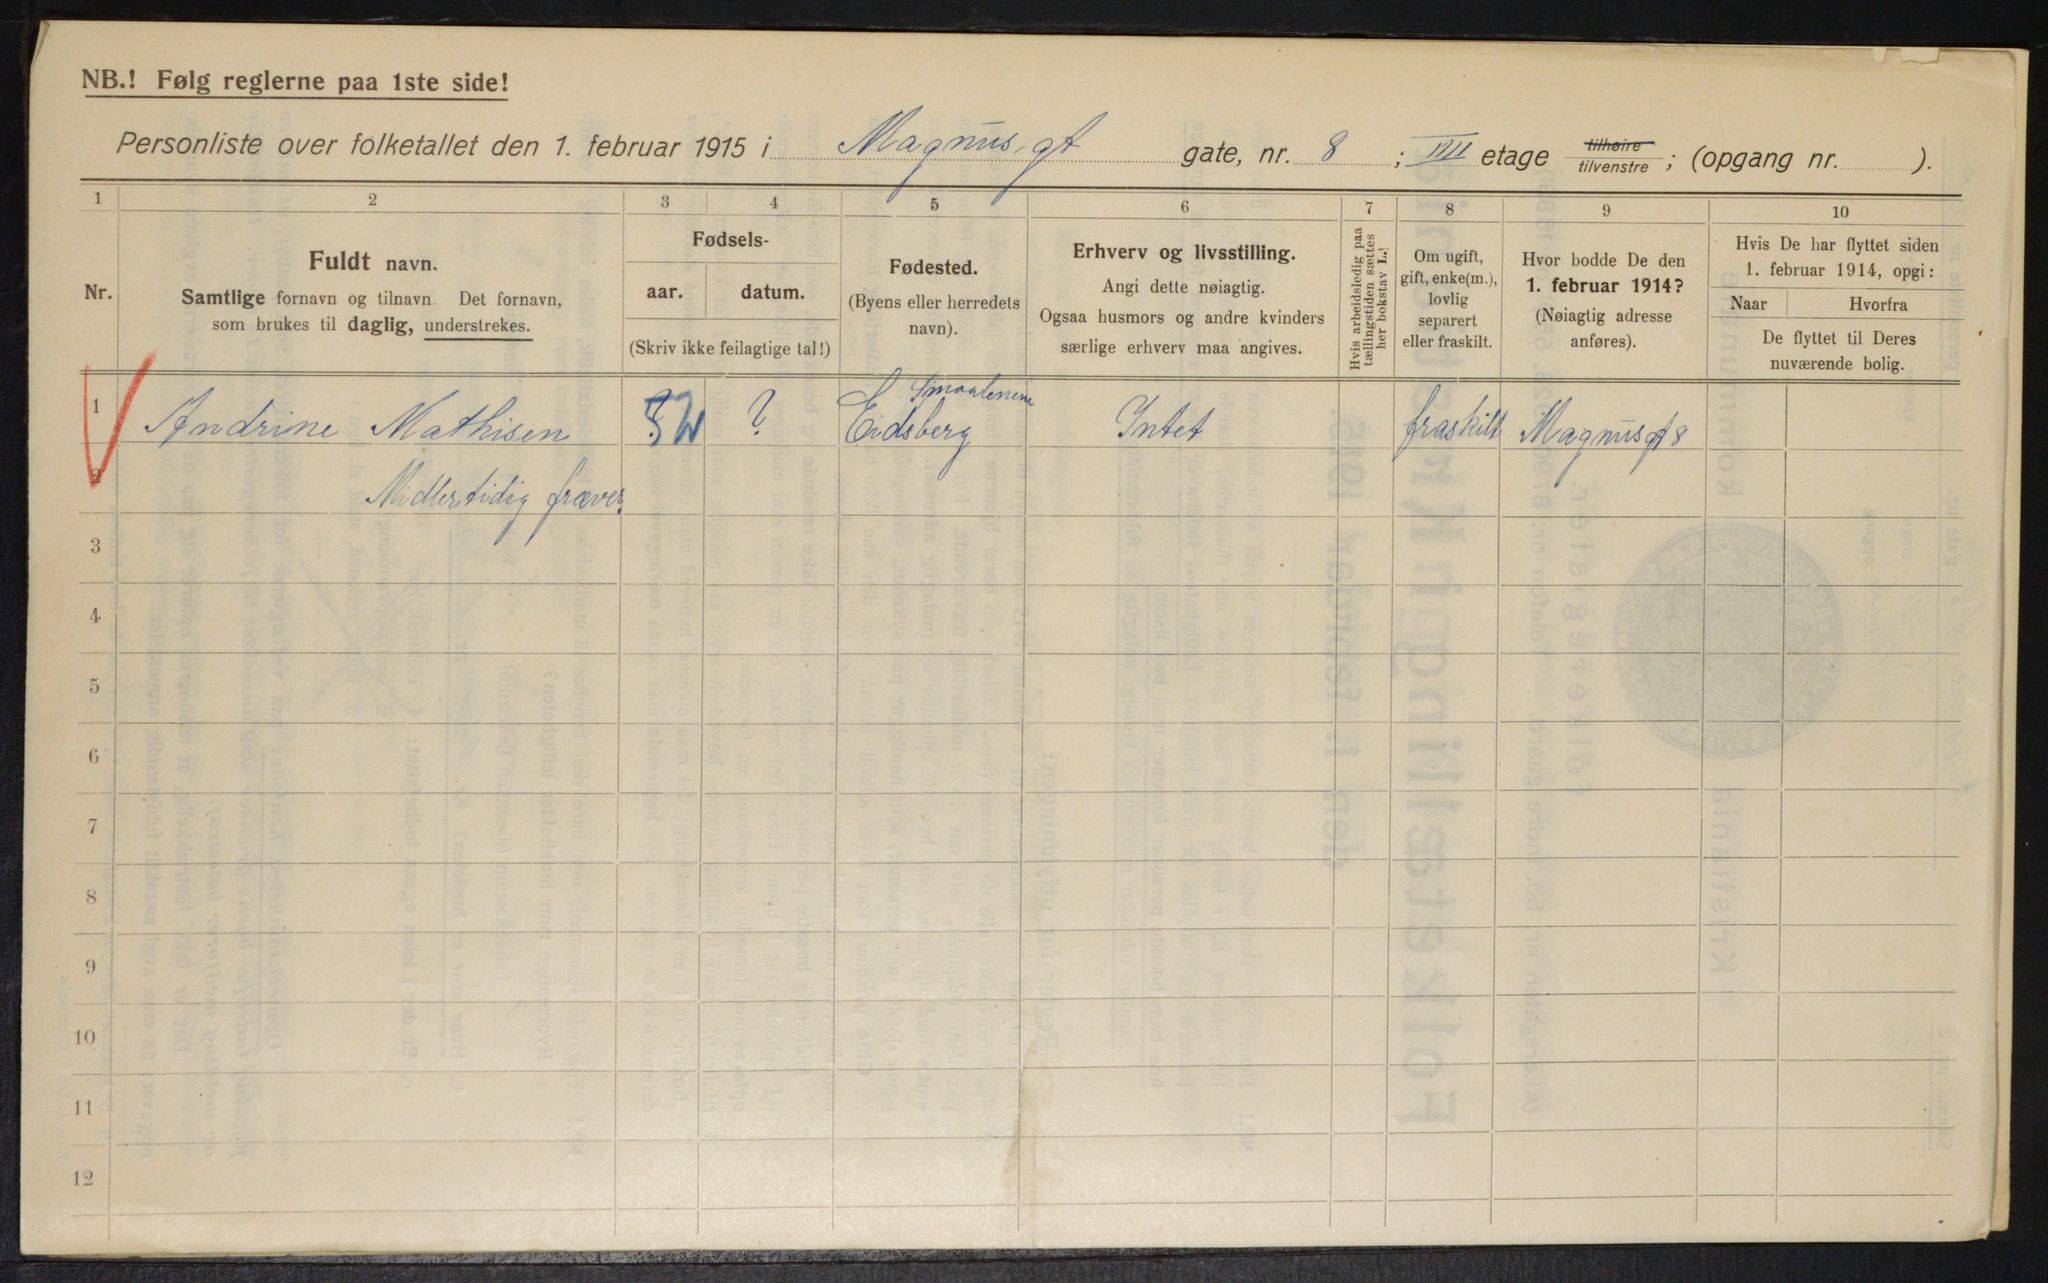 NB.! Følg reglerne paa 1ste side!
Personliste over folketallet den 1. februar 1915 i Magnus gt gate, nr. 8 ; III etage tilhøire tilvenstre ; (opgang nr. ).
1 2 3 4 5 6 7 8 9 10
Nr.
Fuldt navn.
Samtlige fornavn og tilnavn. Det fornavn,
som brukes til daglig, understrekes.
Fødsels-
aar. datum.
(Skriv ikke feilagtige tal!)
Fødested.
(Byens eller herredets
navn).
Erhverv og livsstilling.
Angi dette nøiagtig.
Ogsaa husmors og andre kvinders
særlige erhverv maa angives.
Hvis arbeidsledig paa
tællingstiden sættes
her bokstav L.!
Om ugift,
gift, enke(m.),
lovlig
separert
eller fraskilt.
Hvor bodde De den
1. februar 1914?
(Nøiagtig adresse
anføres).
Hvis De har flyttet siden
1. februar 1914, opgi:
Naar Hvorfra
De flyttet til Deres
nuværende bolig.
Smaalenene
1 Andrine Mathisen ? Eidsberg Intet fraskilt Magnus gt 8
2 Midlertidig fraver.
3
4
5
6
7
8
9
10
11
12